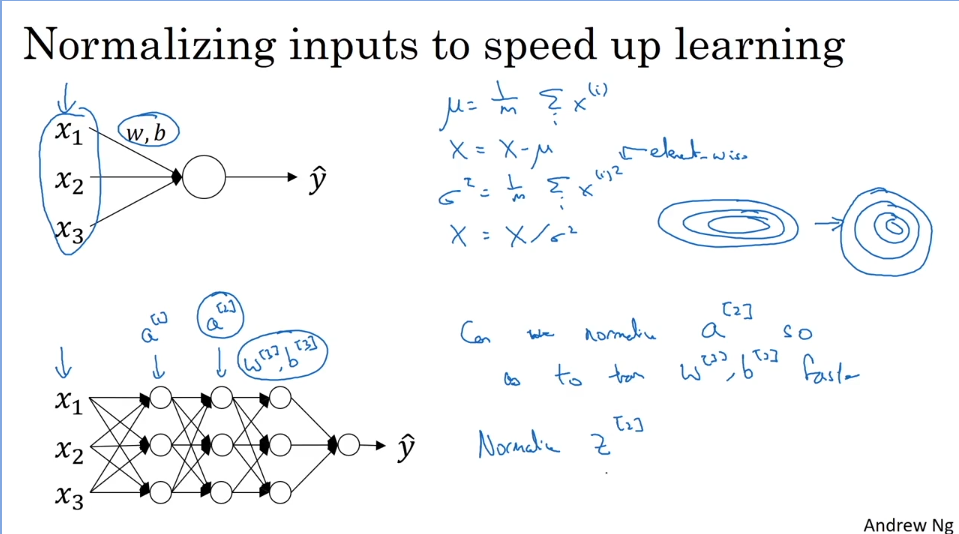 Normalizing inputs to speed up learning
x₁
w, b
x₂
ŷ
x₃
μ = 1/m Σᵢ x⁽ⁱ⁾
X = X - μ
element-wise
σ² = 1/m Σᵢ x⁽ⁱ⁾²
X = X/σ²
a[1]
a[2]
w[3], b[3]
x₁
x₂
ŷ
x₃
Can we normalize a[2] so
as to train w[3], b[3] faster
Normalize z[2]
Andrew Ng